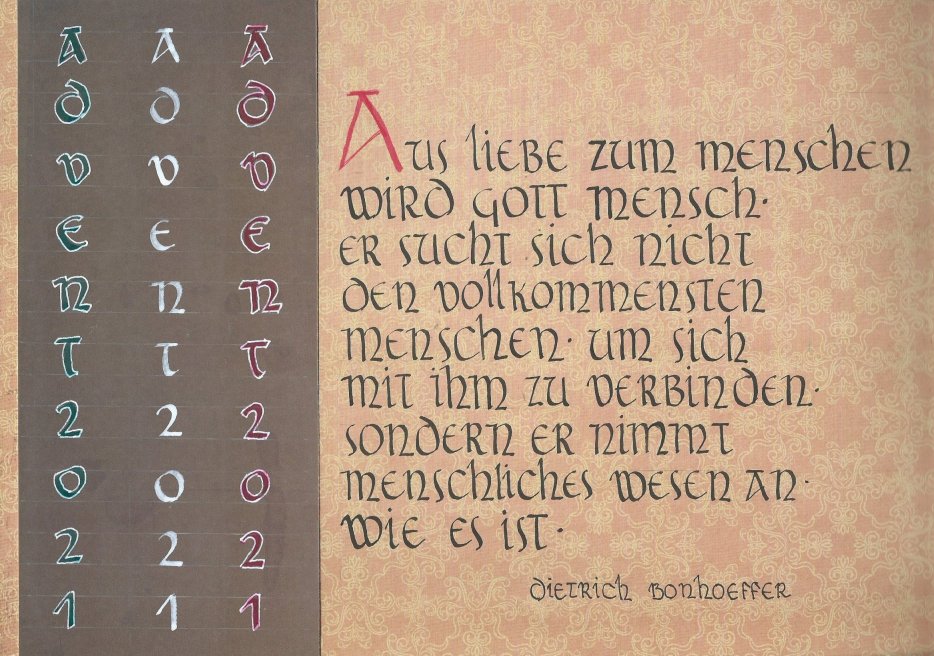 A A A
D D D
V V V
E E E
N N N
T T T
2 2 2
0 0 0
2 2 2
1 1 1
Aus liebe zum menschen
wird gott mensch·
er sucht sich nicht
den vollkommensten
menschen· um sich
mit ihm zu verbinden·
sondern er nimmt
menschliches wesen an·
wie es ist·
dietrich Bonhoeffer